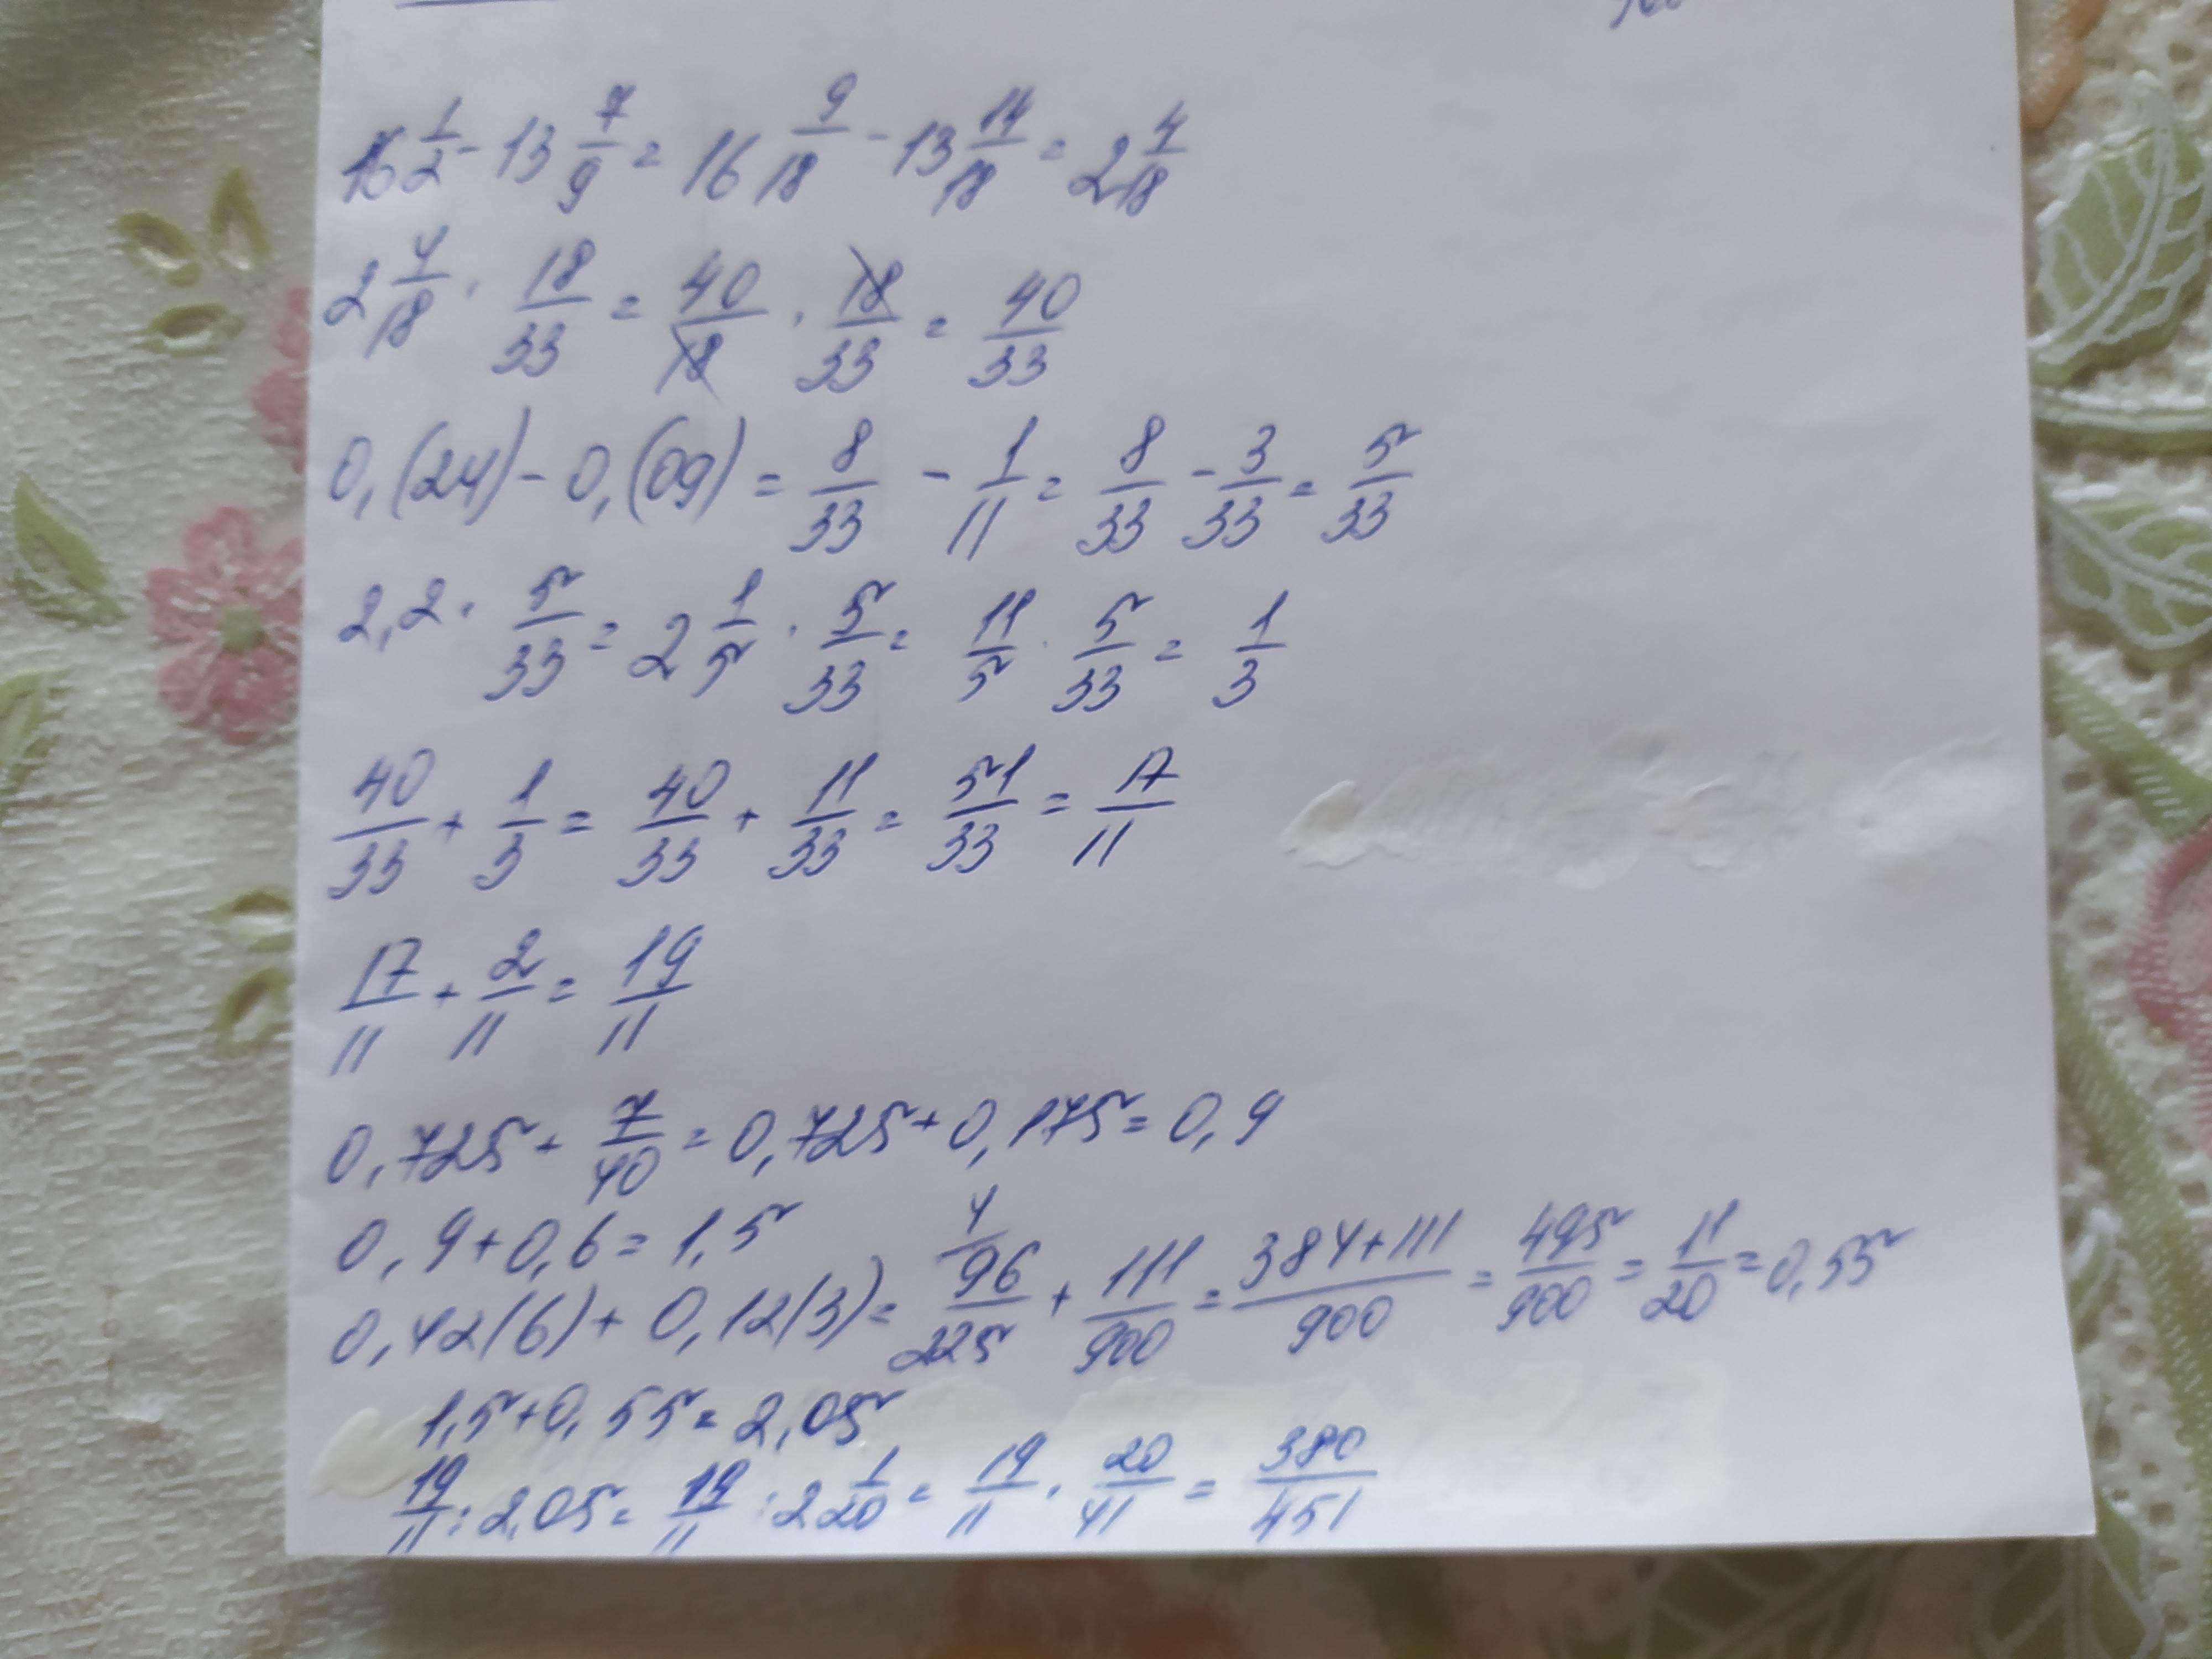 16 1/2 - 13 7/9 = 16 9/18 - 13 14/18 = 2 4/18
2 4/18 · 18/33 = 40/18 · 18/33 = 40/33
0,(24) - 0,(09) = 8/33 - 1/11 = 8/33 - 3/33 = 5/33
2,2 · 5/33 = 2 1/5 · 5/33 = 11/5 · 5/33 = 1/3
40/33 + 1/3 = 40/33 + 11/33 = 51/33 = 17/11
17/11 + 2/11 = 19/11
0,725 + 7/40 = 0,725 + 0,175 = 0,9
0,9 + 0,6 = 1,5
0,42(6) + 0,12(3) = 4/ 96/225 + 111/900 = 384+111/900 = 495/900 = 11/20 = 0,55
1,5 + 0,55 = 2,05
19/11 : 2,05 = 19/11 : 2 1/20 = 19/11 · 20/41 = 380/451